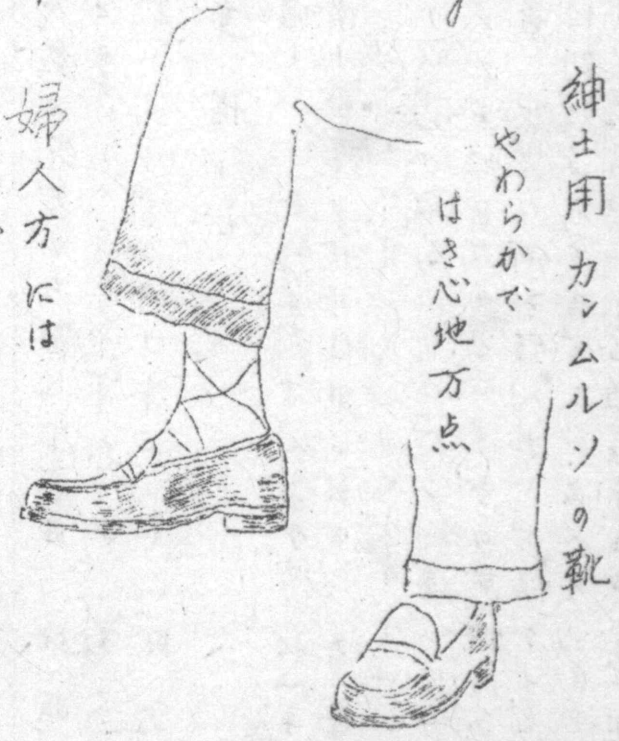 紳士用 カンムルソの靴
やわらかで
はき心地万点
婦人方には